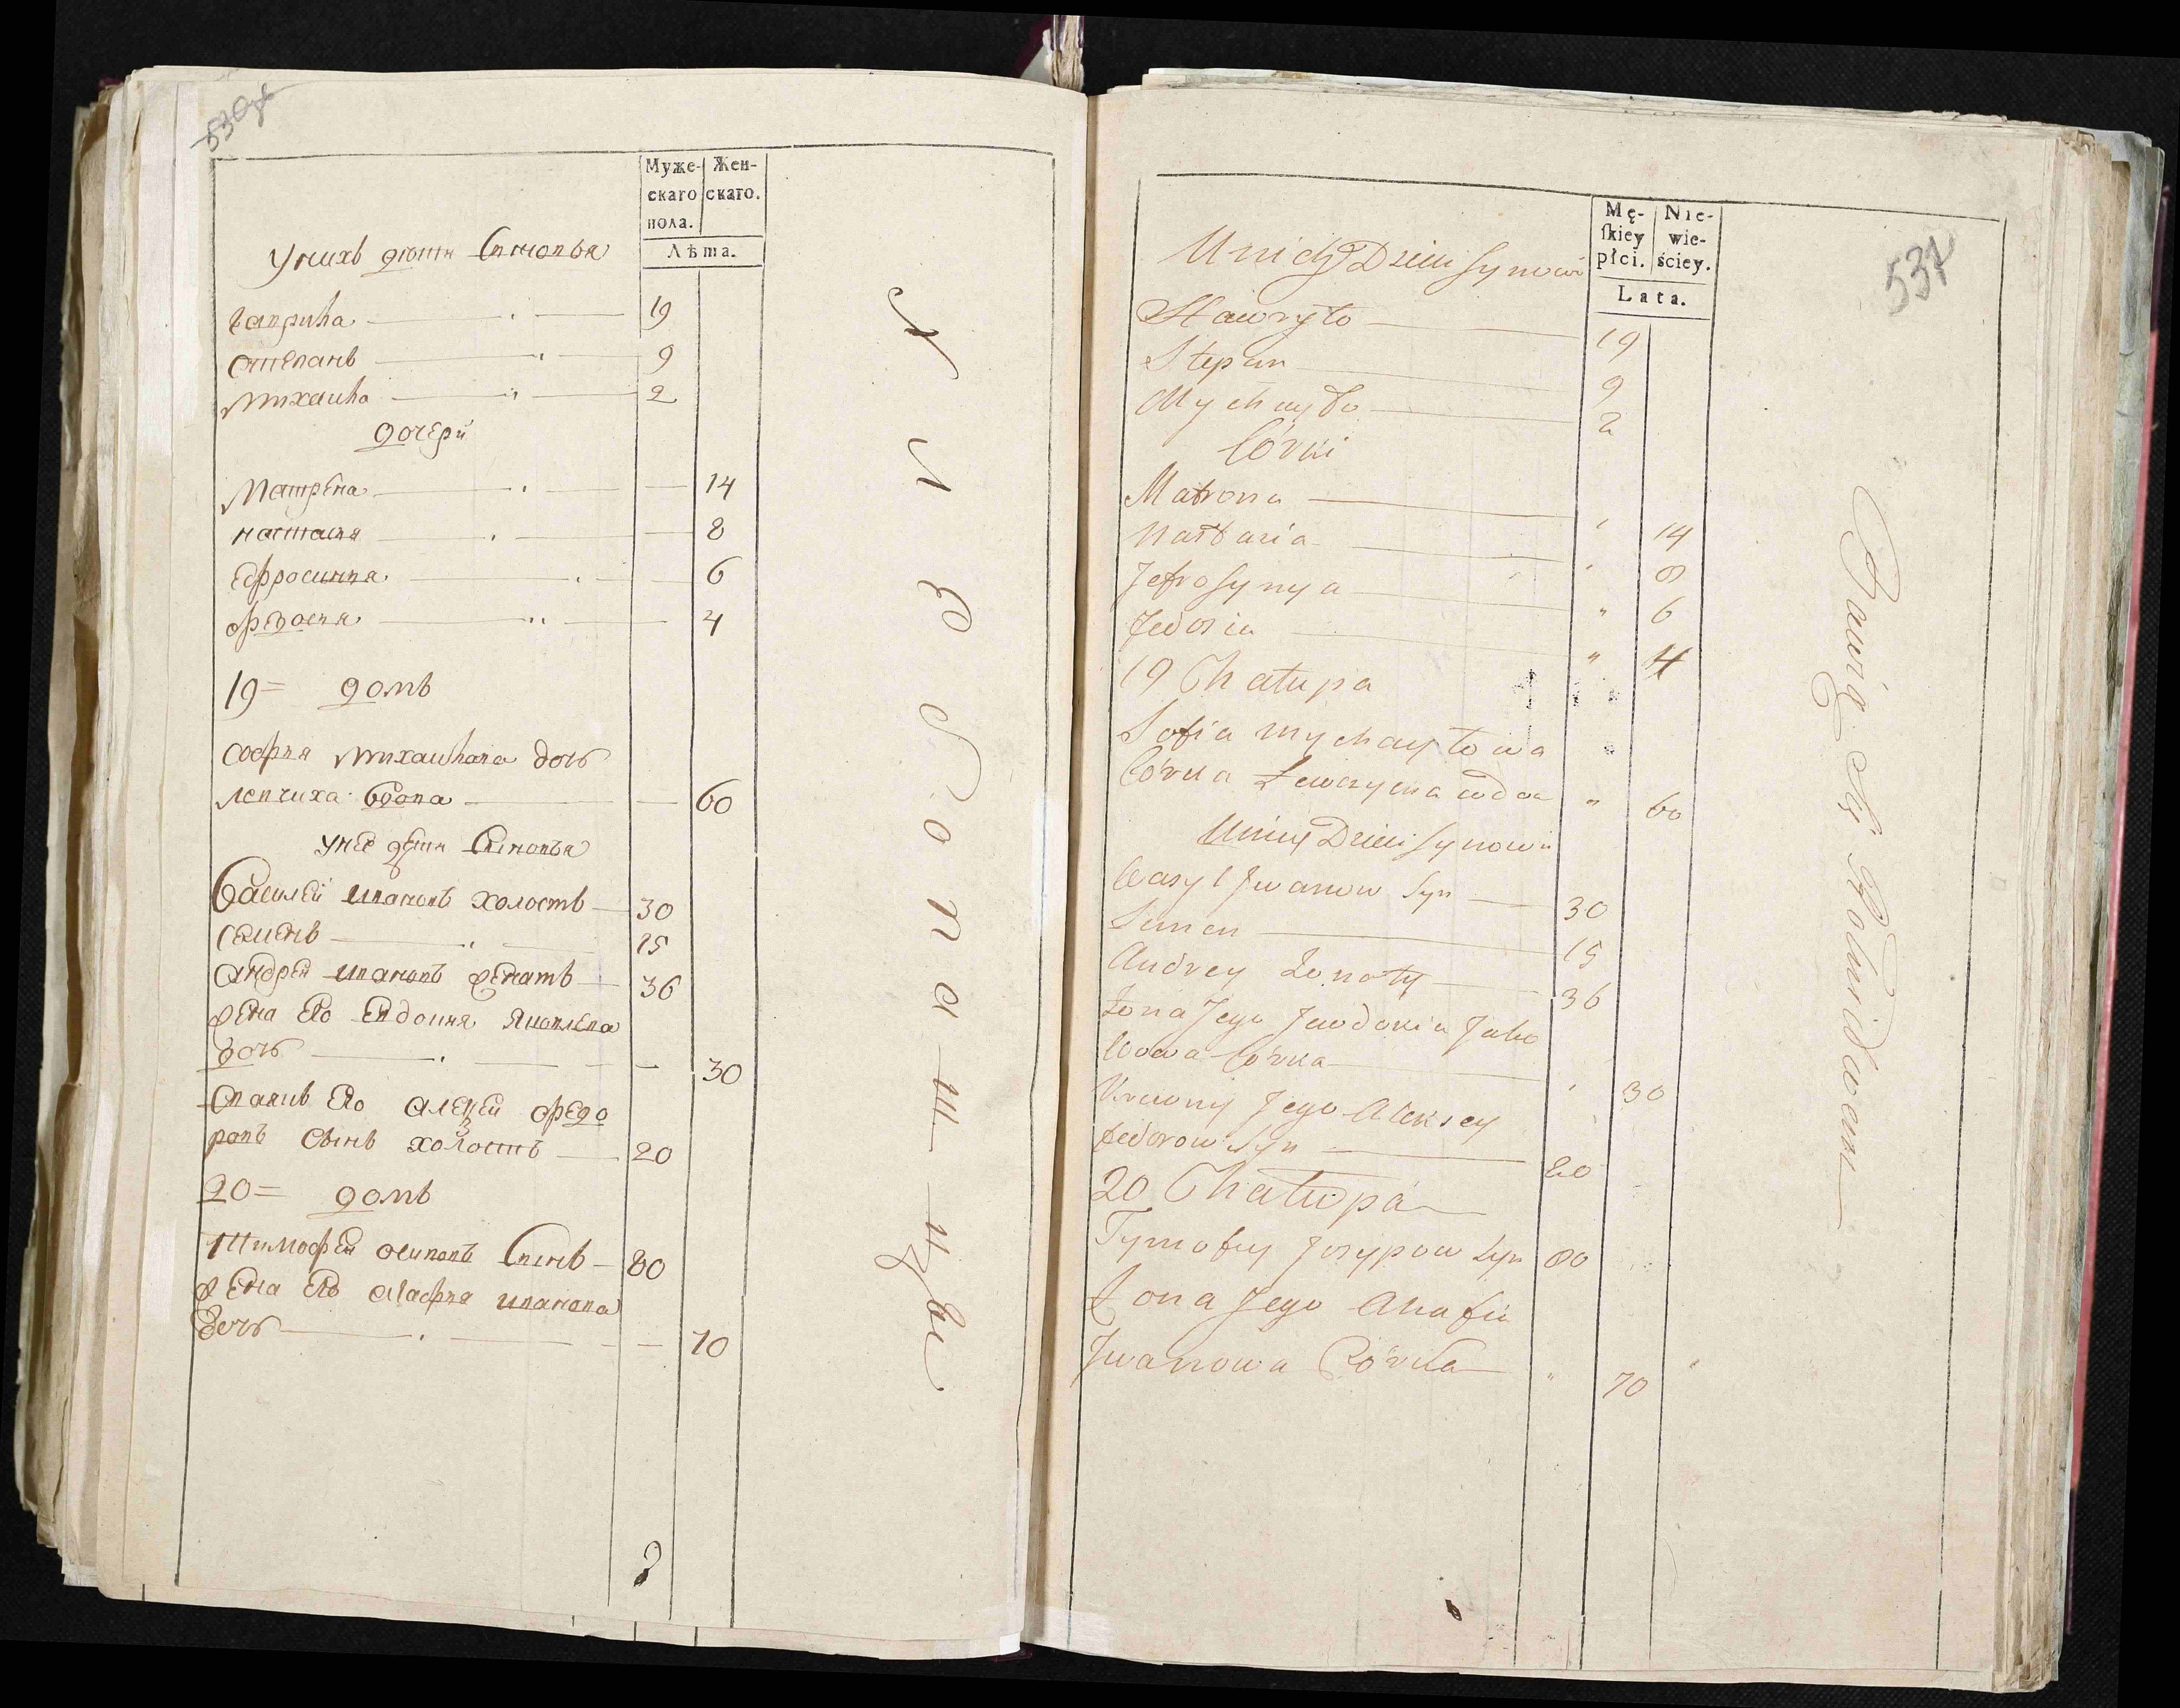 Муже-
скаго
пола.
Жен-
скаго.
Лѣта.
Унихъ дѣти Синовья
Гаврила 19
Степанъ 9
Михаила 2
дочери
Матрена 14
настасия 8
Ефросиния 6
Федосия 4
19 = домъ
София Михаилова дочь
вдова 60
Унее дѣти Синовья
Василей Ивановъ холостъ 30
Семенъ 15
Андрей Ивановъ женатъ 36
жена Его Евдокия Яковлева
дочь 30
Его Алексей Федо
ровъ Сынъ холостъ 20
20 = домъ
Тимофей осиповъ Синъ 80
жена Его Агафия иванова
дочь 70
537
Mę-
ſkiey
płci.
Nie-
wie-
ściey.
Lata.
Unich Dzieci Synowie
Hawryło 19
Stepan 9
Mychayło 2
Córki
Matrona 14
Nastasia 8
Jefrosynya 6
Fedosia 4
19 Chałupa
Sofia Mychayłowa
Córka wdowa 60
Dzieci Synowie
Wasyl Jwanow Syn 30
Semen 15
Andrey Żonaty 36
Żona Jego Jewdokia Jako
wowa Córka 30
Krewny Jego Alexsey
Fedorow Syn 20
20 Chałupa
Tymofiey Josypow Syn 80
Żona Jego Ahafia
Jwanowa Córka 70